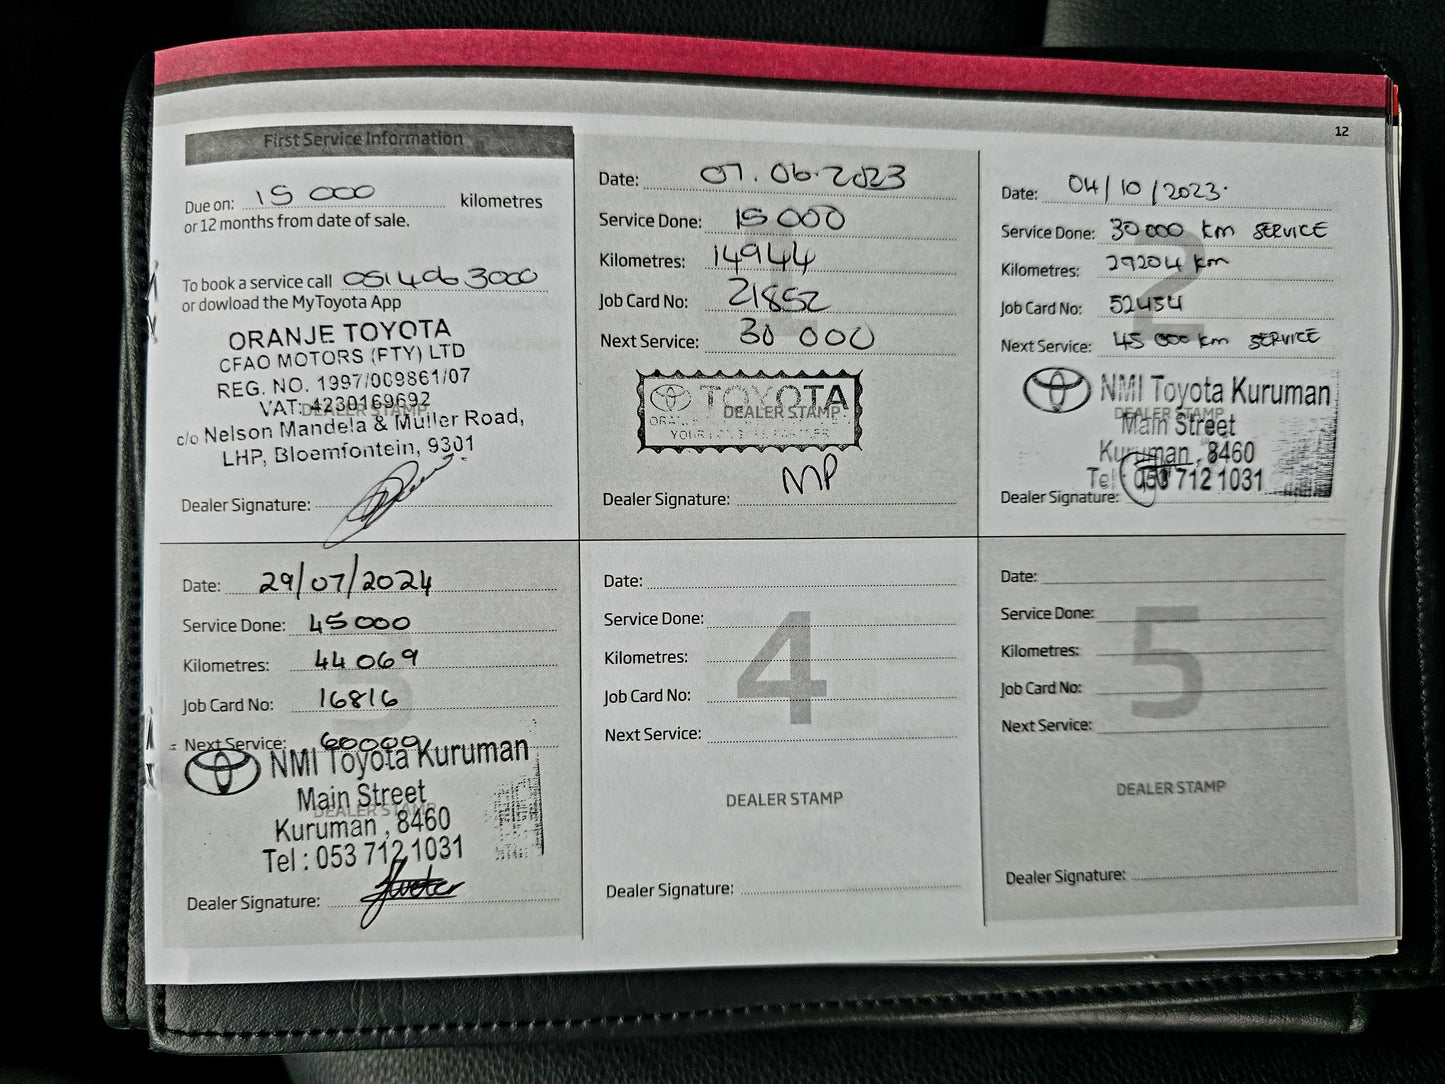 12
First Service Information
Due on: 15 000 kilometres
or 12 months from date of sale.
To book a service call 051 406 3000
or dowload the MyToyota App
ORANJE TOYOTA
CFAO MOTORS (PTY) LTD
REG. NO. 1997/009861/07
VAT: 4230169692
DEALER STAMP
c/o Nelson Mandela & Muller Road,
LHP, Bloemfontein, 9301
Dealer Signature:
Date: 07.06.2023
Service Done: 15 000
Kilometres: 14944
Job Card No: 21852
Next Service: 30 000
TOYOTA
DEALER STAMP
MP
Dealer Signature:
2
Date: 04/10/2023
Service Done: 30 000 km SERVICE
Kilometres: 29204 km
Job Card No: 52454
Next Service: 45 000 km SERVICE
NMI Toyota Kuruman
DEALER STAMP
Main Street
Kuruman, 8460
Tel : 053 712 1031
Dealer Signature:
3
Date: 29/07/2024
Service Done: 45000
Kilometres: 44069
Job Card No: 16816
Next Service: 60000
NMI Toyota Kuruman
Main Street
DEALER STAMP
Kuruman, 8460
Tel : 053 712 1031
Dealer Signature:
4
Date:
Service Done:
Kilometres:
Job Card No:
Next Service:
DEALER STAMP
Dealer Signature:
5
Date:
Service Done:
Kilometres:
Job Card No:
Next Service:
DEALER STAMP
Dealer Signature: